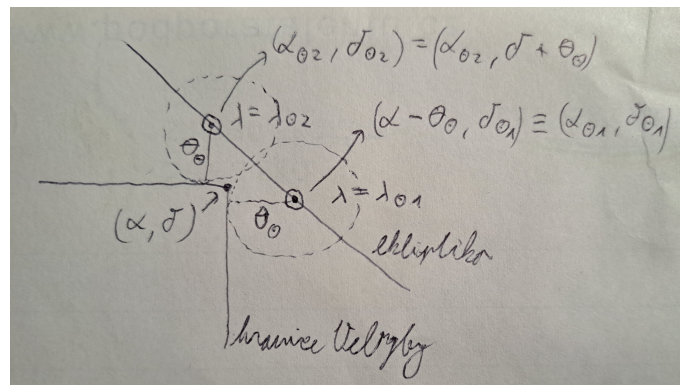 (α⊙2, δ⊙2) = (α⊙2, δ + θ⊙)
λ = λ⊙2
(α − θ⊙, δ⊙1) ≡ (α⊙1, δ⊙1)
θ⊙
λ = λ⊙1
(α, δ)
θ⊙
ekliptika
hranice Velryby